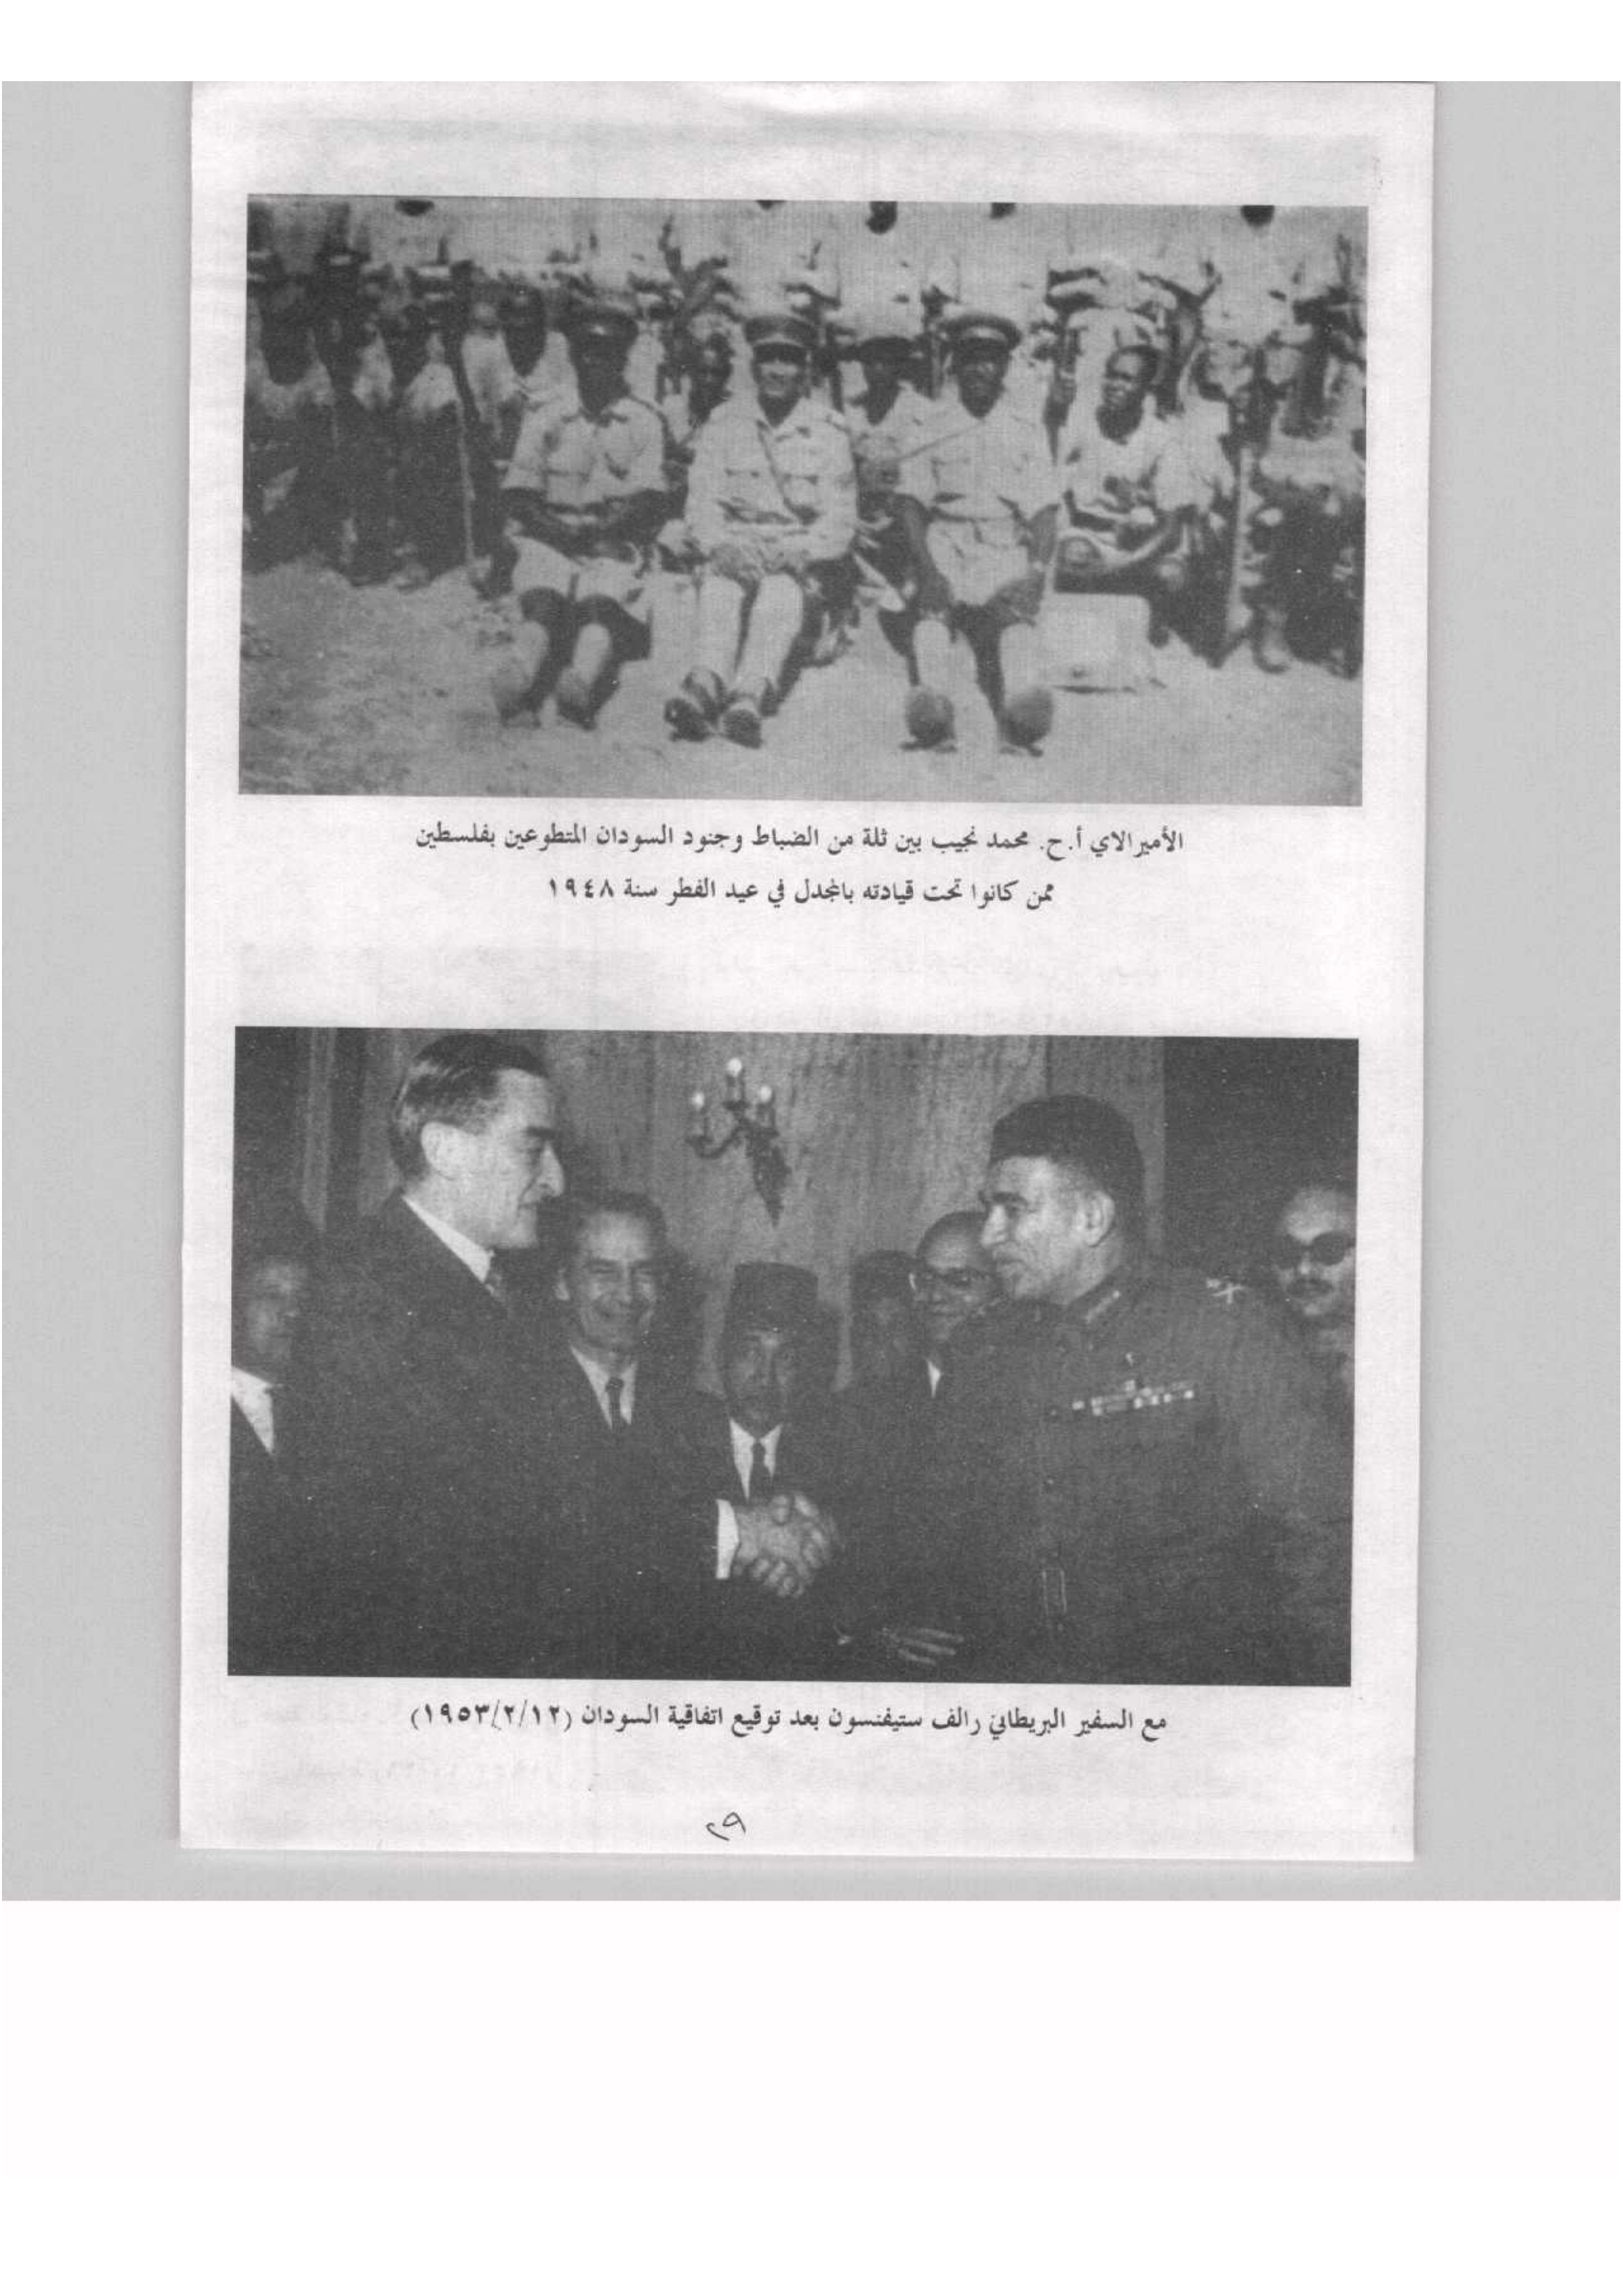 الأميرالاي أ.ح. محمد نجيب بين ثلة من الضباط وجنود السودان المتطوعين بفلسطين
ممن كانوا تحت قيادته بالمجدل في عيد الفطر سنة ١٩٤٨
مع السفير البريطاني رالف ستيفنسون بعد توقيع اتفاقية السودان (١٩٥٣/٢/١٢)
٢٩